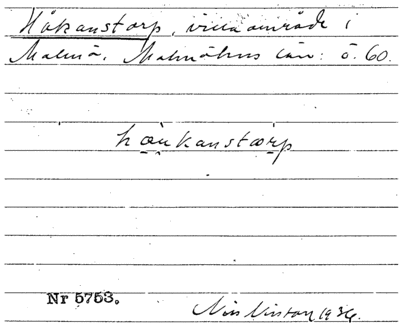 Håkanstorp, villaområde i
Malmö. Malmöhus län: ö. 60.
hạ̊ukanstọrp
Nr 5753.
1936.